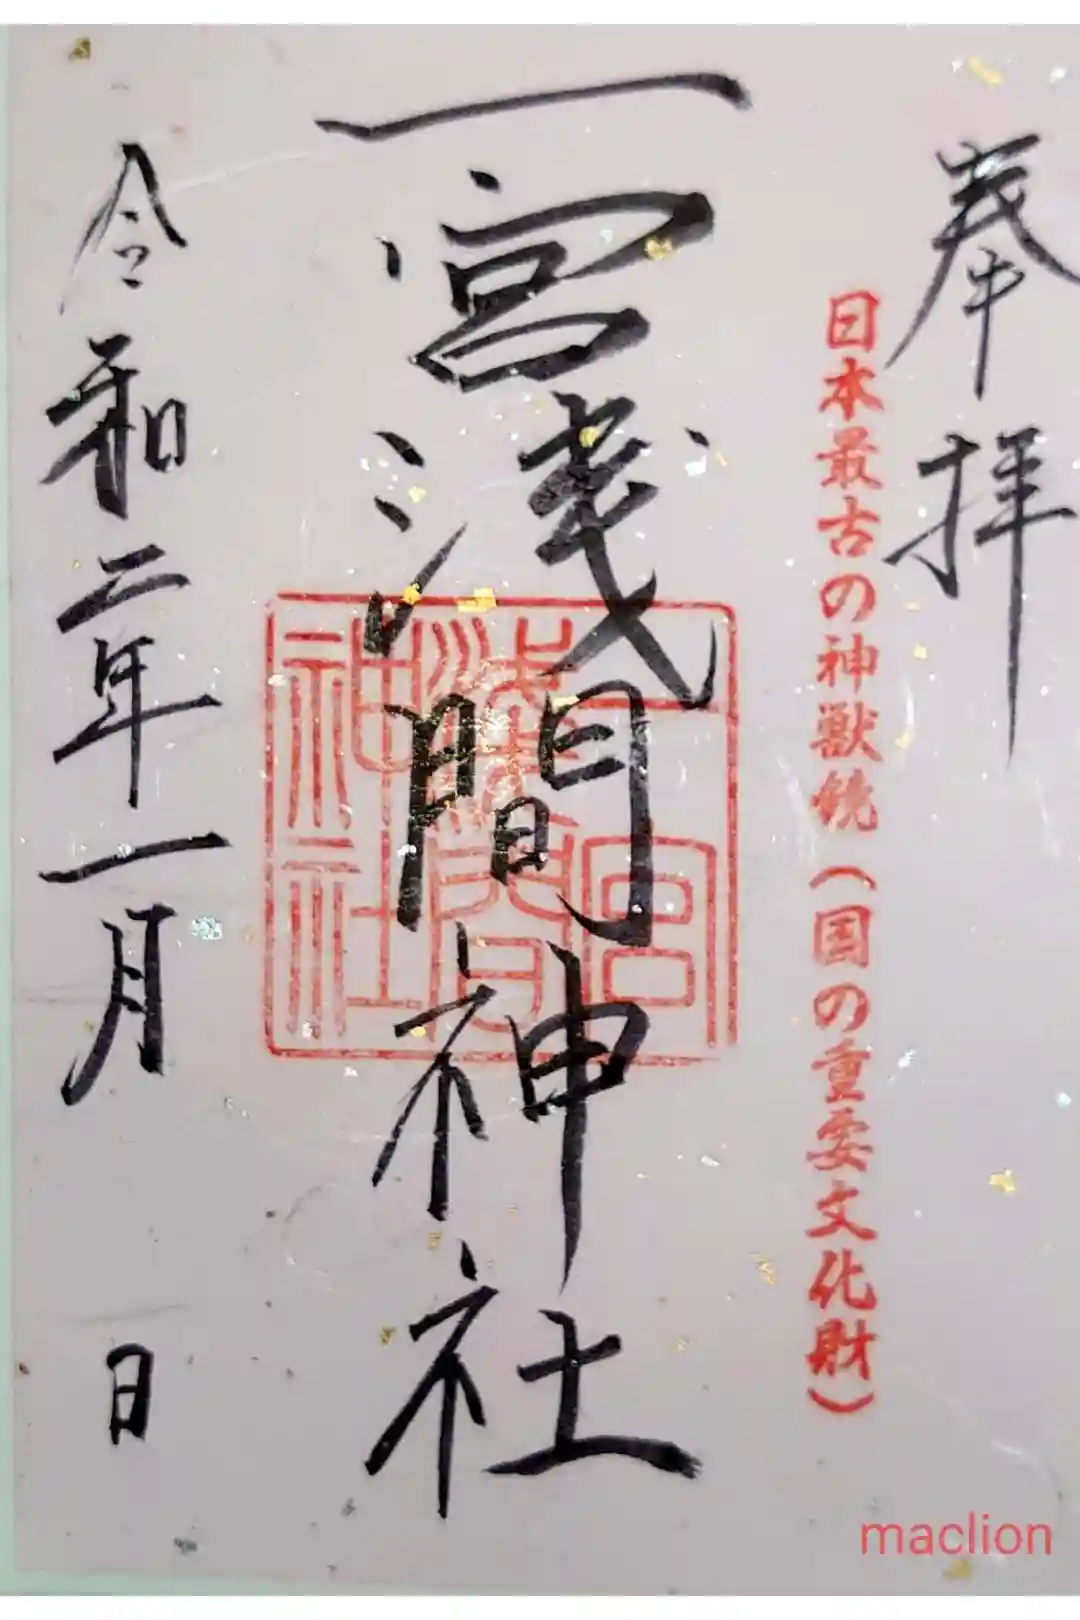 奉拝
日本最古の神獣鏡（国の重要文化財）
一宮浅間神社
一宮浅間神社
令和二年一月 日
maclion